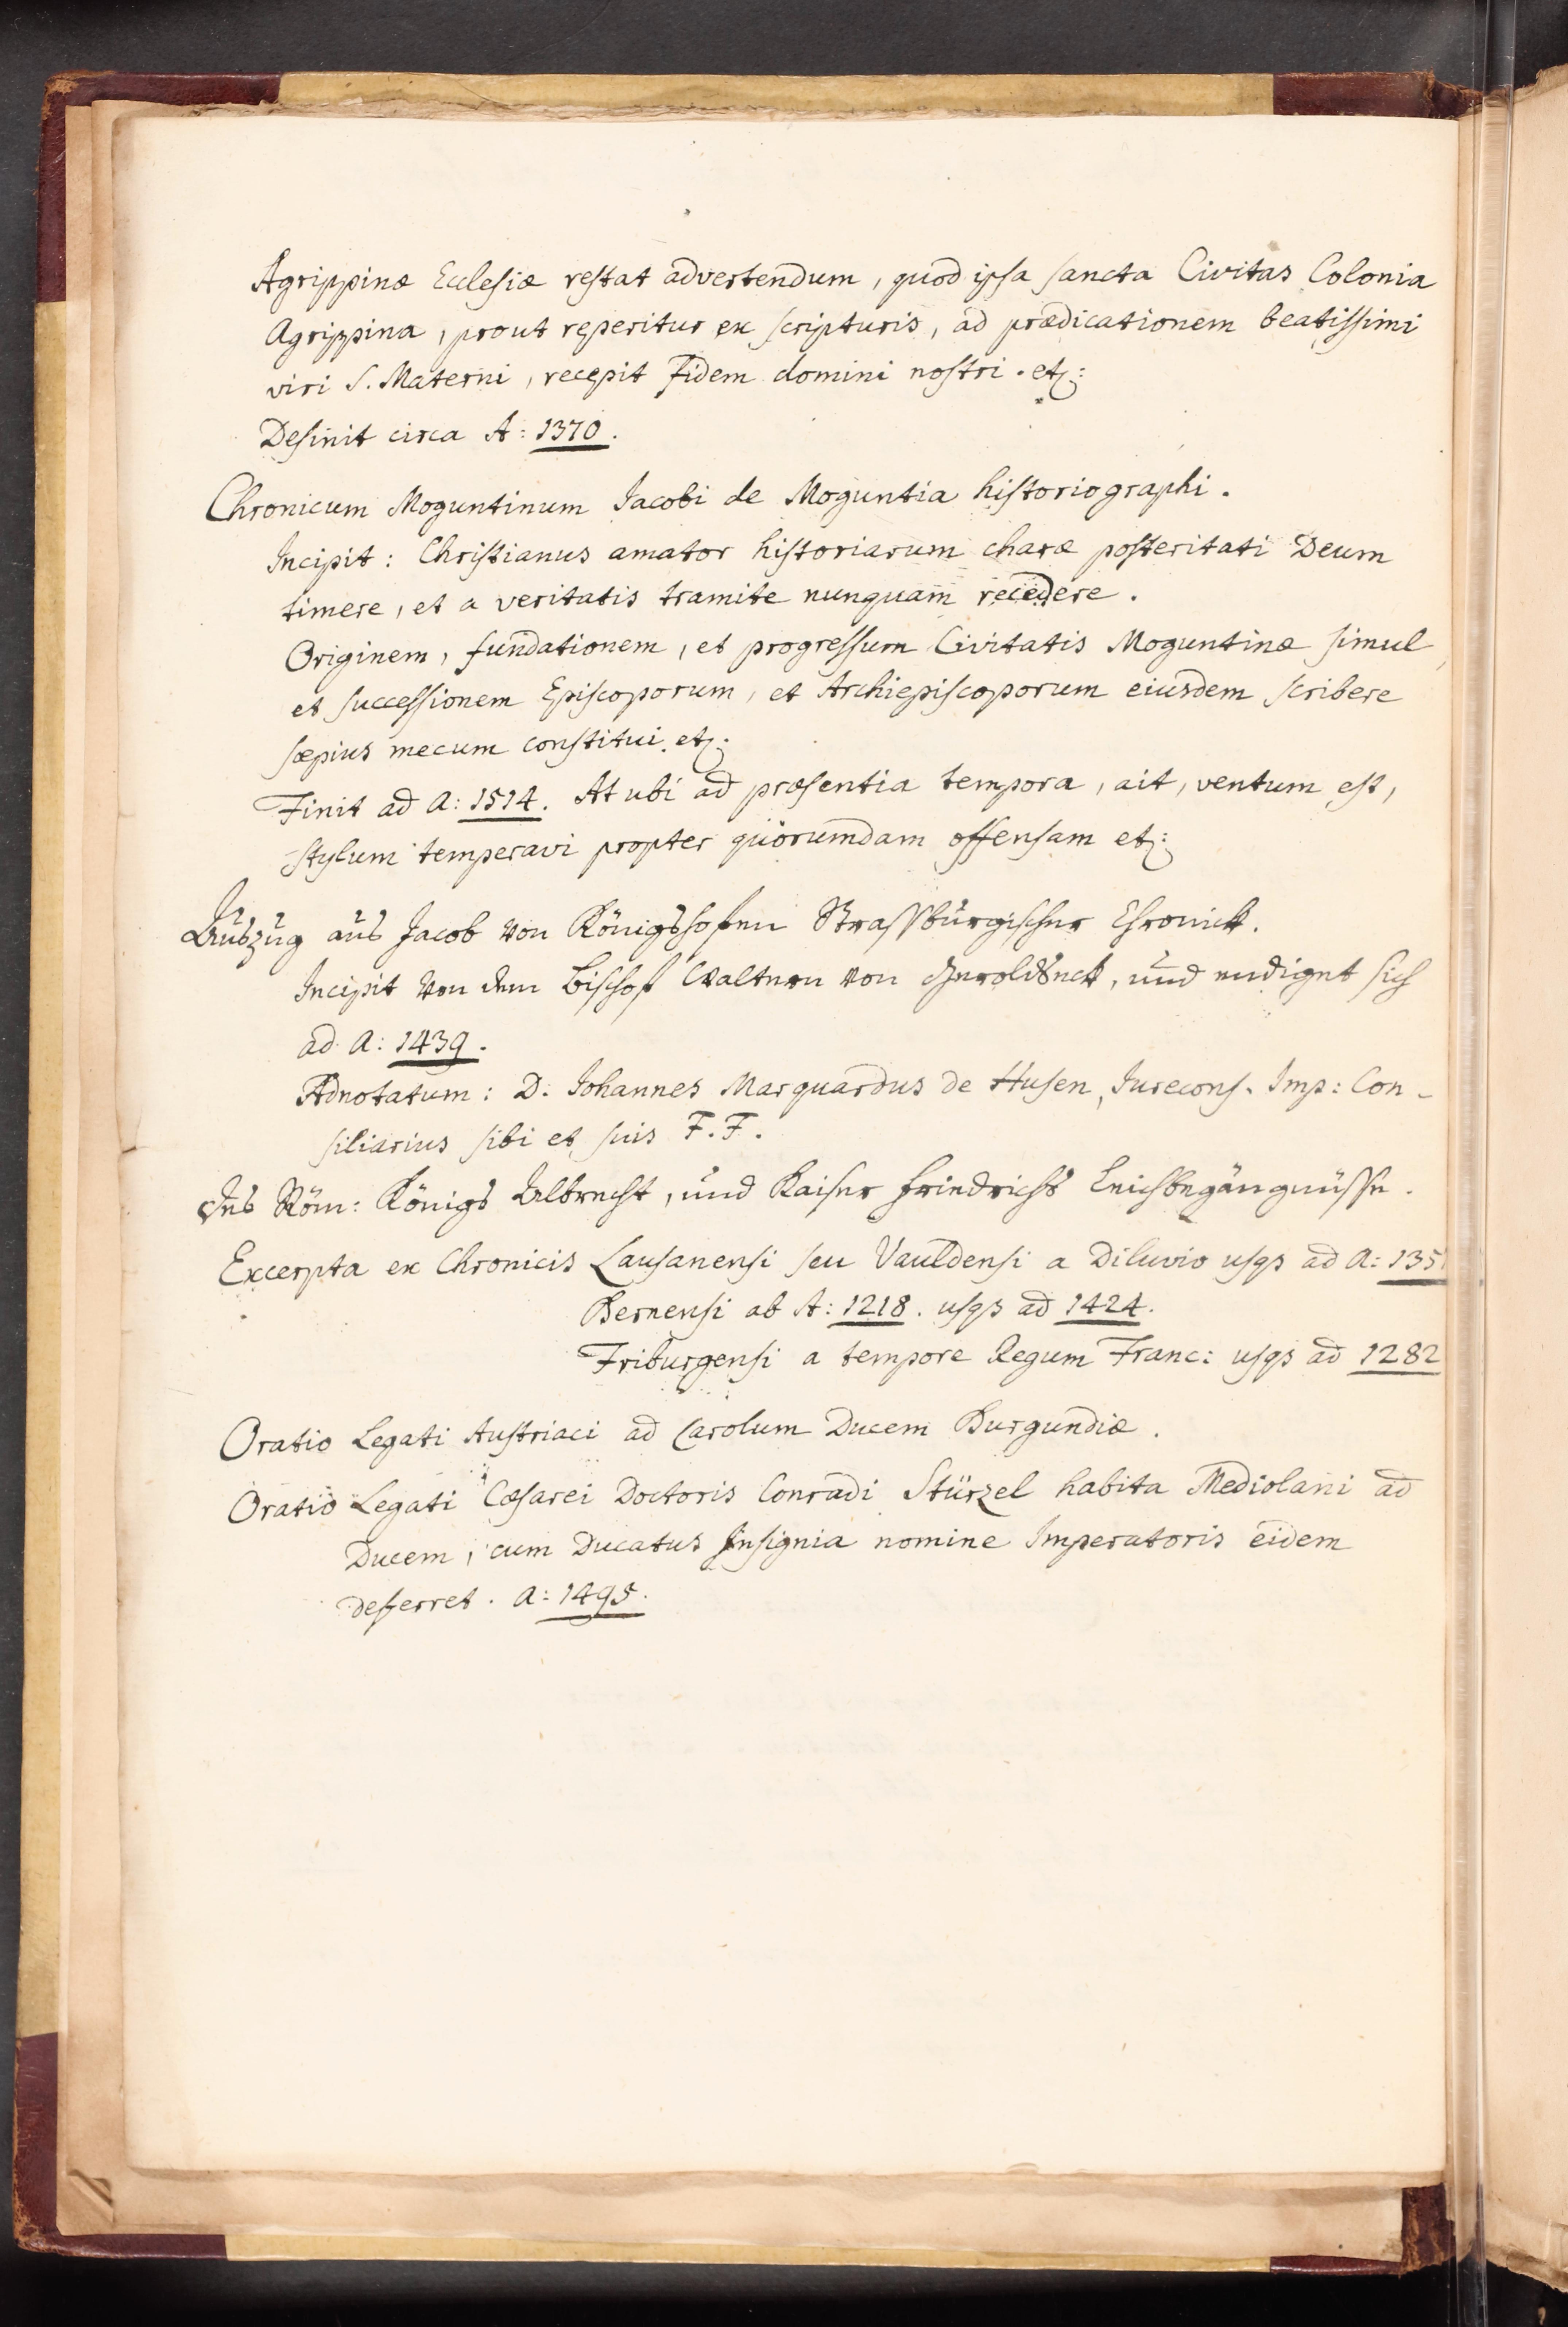 Agrippinæ Ecclesiæ restat advertendum, quod ipsa sancta Civitas Colonia
Agrippina, prout reperitur ex scripturis, ad prædicationem beatissimi
viri S. Materni, recepit fidem domini nostri. etc:
Desinit circa A: 1370.
Chronicum Moguntinum Jacobi de Moguntia historiographi.
Incipit: Christianus amator historiarum charæ posteritati Deum
timere, et a veritatis tramite nunquam recedere.
Originem, fundationem, et progressum Civitatis Moguntinæ simul,
et successionem Episcoporum, et Archiepiscoporum eiusdem scribere
sæpius mecum constitui. etc:
Finit ad A: 1514. At ubi ad præsentia tempora, ait, ventum est,
stylum temperavi propter quorumdam offensam etc:
Auszug aus Jacob von Königshofen Strassburgischer Chronick.
Incipit von dem Bischof Waltern von Geroldseck, und endiget sich
ad A: 1439.
Adnotatum: D. Johannes Marquardus de Husen, Jurecons. Imp: Con-
siliarius sibi et suis F. F.
Des Röm: Königs Albrecht, und Kaiser Friedrichs Leichbegängnüsse.
Excerpta ex Chronicis Lausanensi seu Vauldensi a Diluvio usqs ad A: 135
Bernensi ab A: 1218. usqs ad 1424.
Friburgensi a tempore Regum Franc: usqs ad 1282
Oratio Legati Austriaci ad Carolum Ducem Burgundiæ.
Oratio Legati Cæsarei Doctoris Conradi Stürzel habita Mediolani ad
Ducem, cum Ducatus Insignia nomine Imperatoris eidem
deferret. A: 1495.